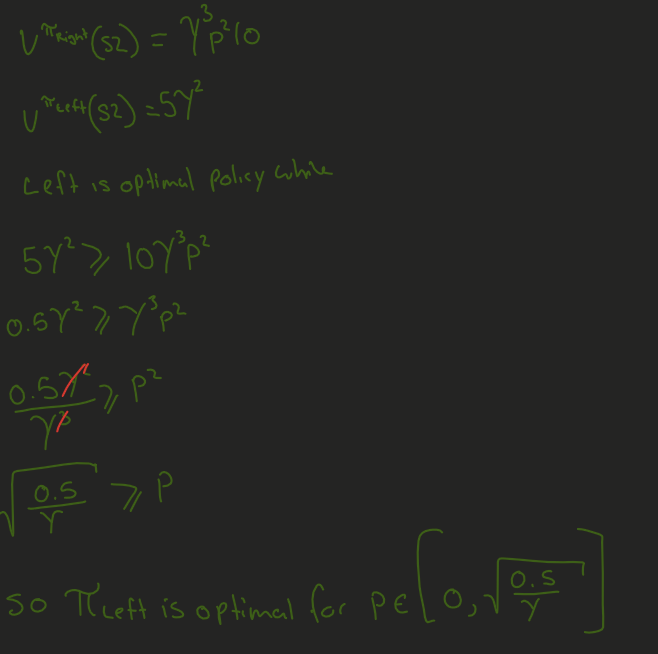 V^πRight(s2) = γ³p²10
V^πLeft(s2) = 5γ²
Left is optimal policy while
5γ² ⩾ 10γ³p²
0.5γ² ⩾ γ³p²
0.5γ²/γ³ ⩾ p²
√(0.5/γ) ⩾ p
so πLeft is optimal for p∈[0, √(0.5/γ)]